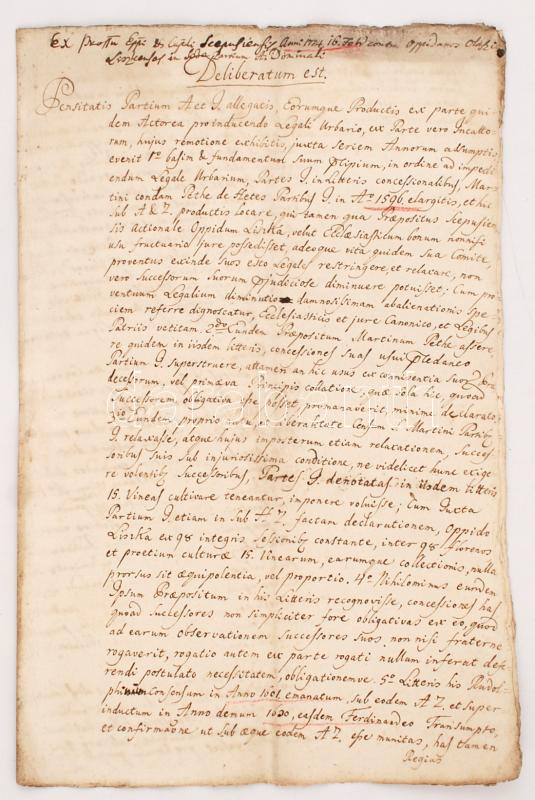 Ex Proссu Eppi Scepusiensis Anni 1774 16. Feb contra Oppidanos Olaszi
Liscenses in Sede Partium A. Dominali
Deliberatum est.
Pensitatis Partium A et I. allegatis, Eorumque Productis ex parte qui-
dem Actorea pro inducendo Legali Urbario, ex Parte vero Incatto-
rum, hujus remotione exhibitis, juxta Seriem Annorum adsumptis
evenit 1o basim & fundamentum suum in ordine ad impedi-
endum Legale Urbarium, Partes I. in Litteris concessionalibus, Mar-
tini condam Pethe de Hetes Partibus I. in Ao 1596. elargitis, et hic
sub A & Z. productis locare, qui tamen qua Præpositus Scepusien-
sis Actionale Oppidum Liszka, velut Ecclæsiasticum bonum nonnisi
usu fructuario jure possedisset, adeoque vita quidem sua Comite
proventus exinde suos esto Legales restringere, et relaxare, non
vero Successorum suorum præjudiciose diminuere potuisset; Cum pro-
ventuum Legalium diminutio damnosissimam abalienationis spe-
ciem referre dignoscatur, Ecclesiasticis et jure Canonico, et Legibus
Patriis vetitam. 2do Eundem Præpositum Martinum Pethe assere-
re quidem in iisdem litteris, concessiones suas usui
Partium I. superstruere, attamen an hic usus ex conniventia suor. Præ-
decessorum, vel primæva Principis collatione, quæ sola hic, quoad
Successorem, obligativa esse posset, promanaverit, minime declarato.
3io Eundem proprio ausu, et liberalitate Censum S. Martini Partibus
I. relaxasse, atque hujus imposterum etiam relaxationem, Succes-
soribus suis sub injuriosissima conditione, ne videlicet hunc exige-
re volentib. Successoribus, Partes I. denotatas in iisdem litteris
15. Vineas cultivare teneantur, imponere voluisse; Cum juxta
Partium I. etiam in sub Z. factam declarutionem, Oppido
Liszka ex 98 integris Sessionib. constante, inter 98 florenos
et pretium culturæ 15. Vinearum, earumque collectionis, nulla
prorsus sit æquipolentia, vel proportio. 4o Nihilominus eundem
Ipsum Præpositum in his Litteris recognovisse, concessiones has
quoad Successores non simpliciter fore obligativas ex eo, quod
ad earum observationem Successores suos nonnisi fraterne
rogaverit, rogatio autem ex parte rogati nullum inferat defe-
rendi postulato necessitatem, obligationemve. 5o Litteris his Rudol-
phinum Consensum in Anno 1601 emanatum, sub eodem A Z. et super
inductum in Anno demum 1630, easdem Ferdinandeo Transumpto,
et confirmatione ut sub æque eodem A Z. esse munitas, has tamen
Regias